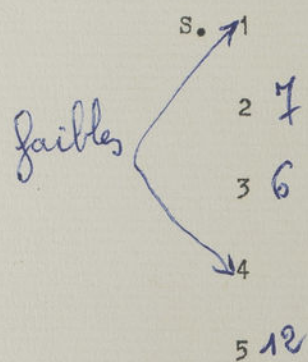 S. 1
2 7
faibles
3 6
4
5 12